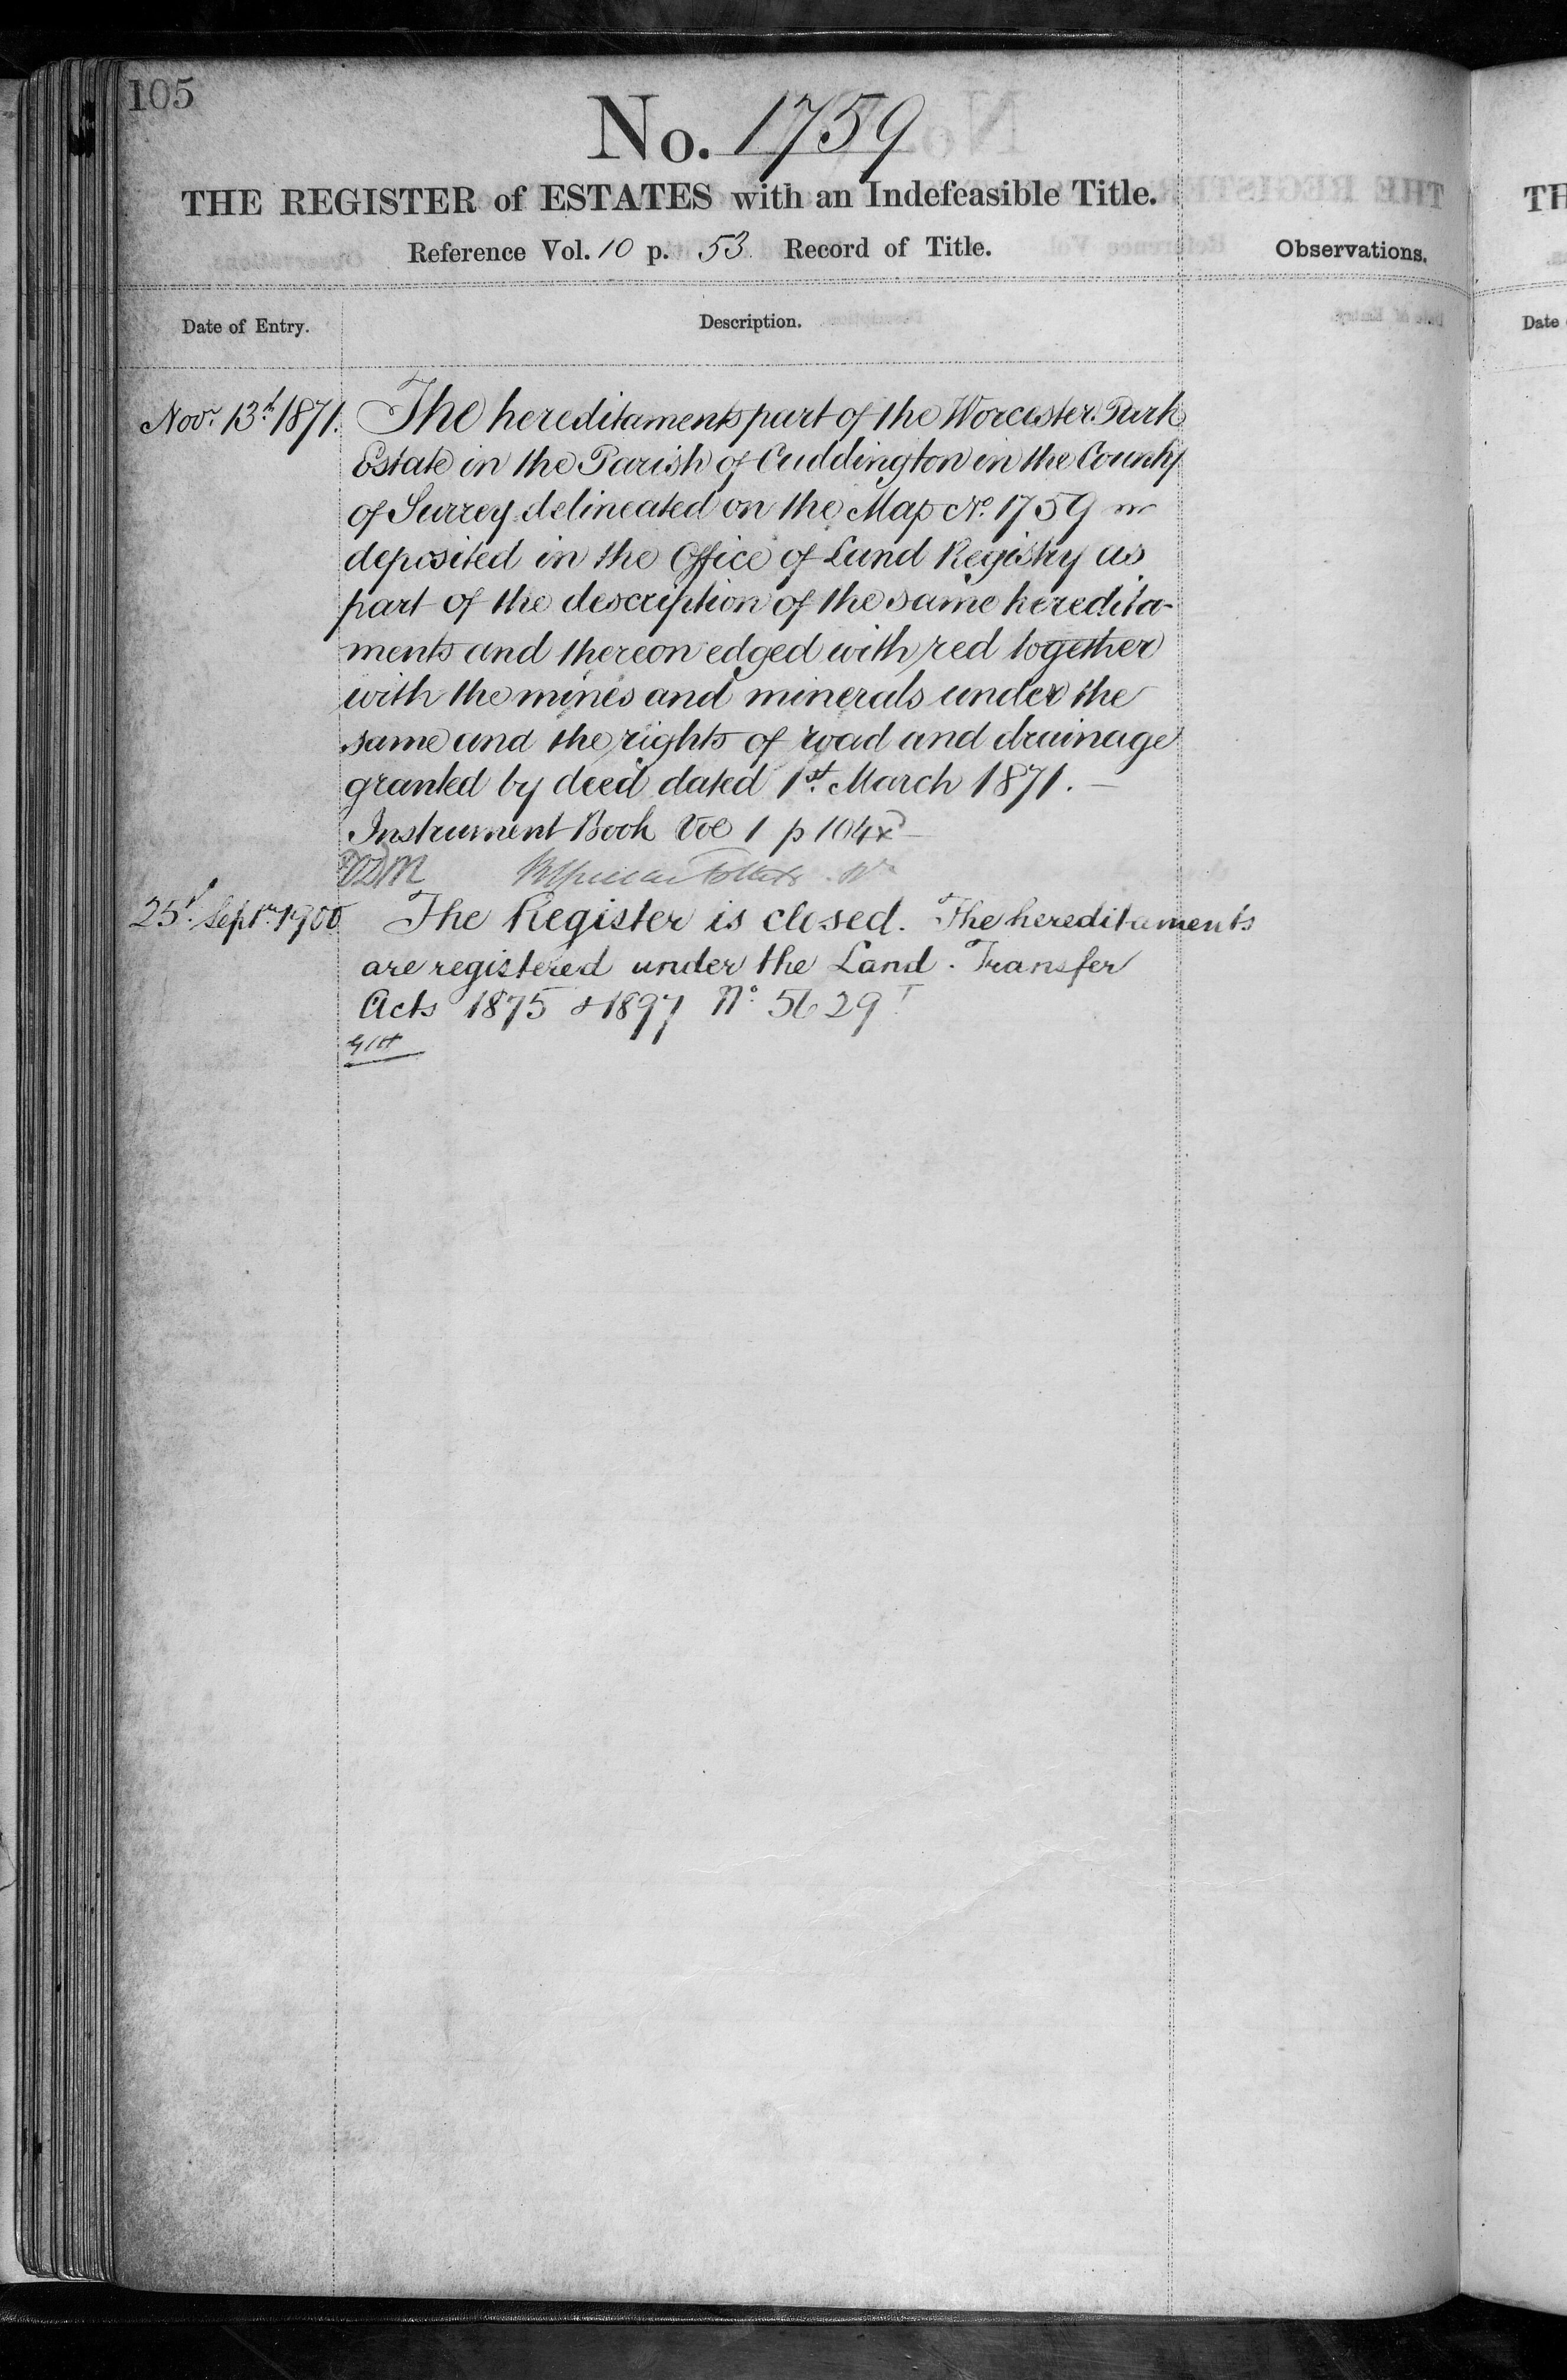 105
No. 1759
THE REGISTER of ESTATES with an Indefeasible Title.
Reference Vol. 10 p. 53 Record of Title.
Observations.
Date of Entry.
Description.
Novr. 13th 1871. The hereditaments part of the Worcester Park
Estate in the Parish of Cuddington in the County
of Surrey delineated on the Map No. 1759
deposited in the Office of Land Registry as
part of the description of the same heredita-
ments and thereon edged with red together
with the mines and minerals under the
same and the rights of road and drainage
granted by deed dated 1st. March 1871. —
Instrument Book Vol 1 p 104
25th Septr. 1900 The Register is closed. The hereditaments
are registered under the Land Transfer
Acts 1875 & 1897 No. 5629
TH
Date